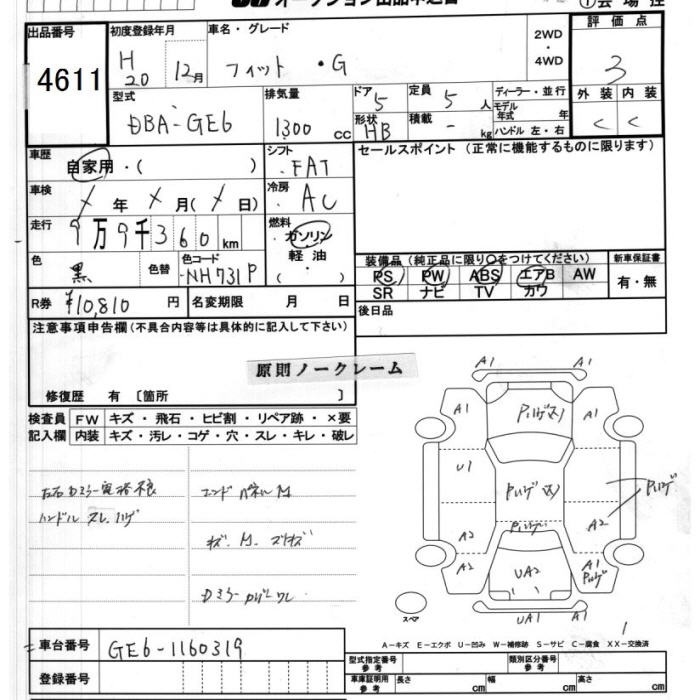 オークション出品申込書
①会場控
出品番号
4611
初度登録年月
H20 12月
車名・グレード
フィット ・G
2WD
・
4WD
評価点
3
型式
DBA-GE6
排気量
1300 cc
ドア
5
形状
HB
定員
5 人
積載
- kg
ディーラー・並行
モデル年式 年
ハンドル 左・右
外装 内装
C C
車歴
自家用・( )
シフト
FAT
セールスポイント (正常に機能するものに限ります)
車検
/ 年 / 月 ( / 日)
冷房
AC
走行
9万9千360km
燃料
ガソリン
軽油
・( )
色
黒
色替
色コード
NH731P
装備品 (純正品に限り○をつけてください)
PS PW ABS エアB AW
SR ナビ TV カワ
新車保証書
有・無
R券 ¥10,810 円
名変期限 月 日
後日品
注意事項申告欄(不具合内容等は具体的に記入して下さい)
原則ノークレーム
修復歴 有 〔箇所 〕
検査員記入欄
FW キズ・飛石・ヒビ割・リペア跡・×要
内装 キズ・汚レ・コゲ・穴・スレ・キレ・破レ
左右Dミラー電格不良
ハンドル スレ、ハゲ
エンド パネルM
キズ、M、
Dミラー ワレ
A1 A1
A1 A1
U1
A2 A2
A2 A1
UA2
UA1 UA1
スペア
1
A-キズ E-エクボ U-凹み W-補修跡 S-サビ C-腐食 XX-交換済
車台番号
GE6-1160319
登録番号
型式指定番号 参考
類別区分番号 参考
車庫証明用 参考
長さ cm
幅 cm
高さ cm